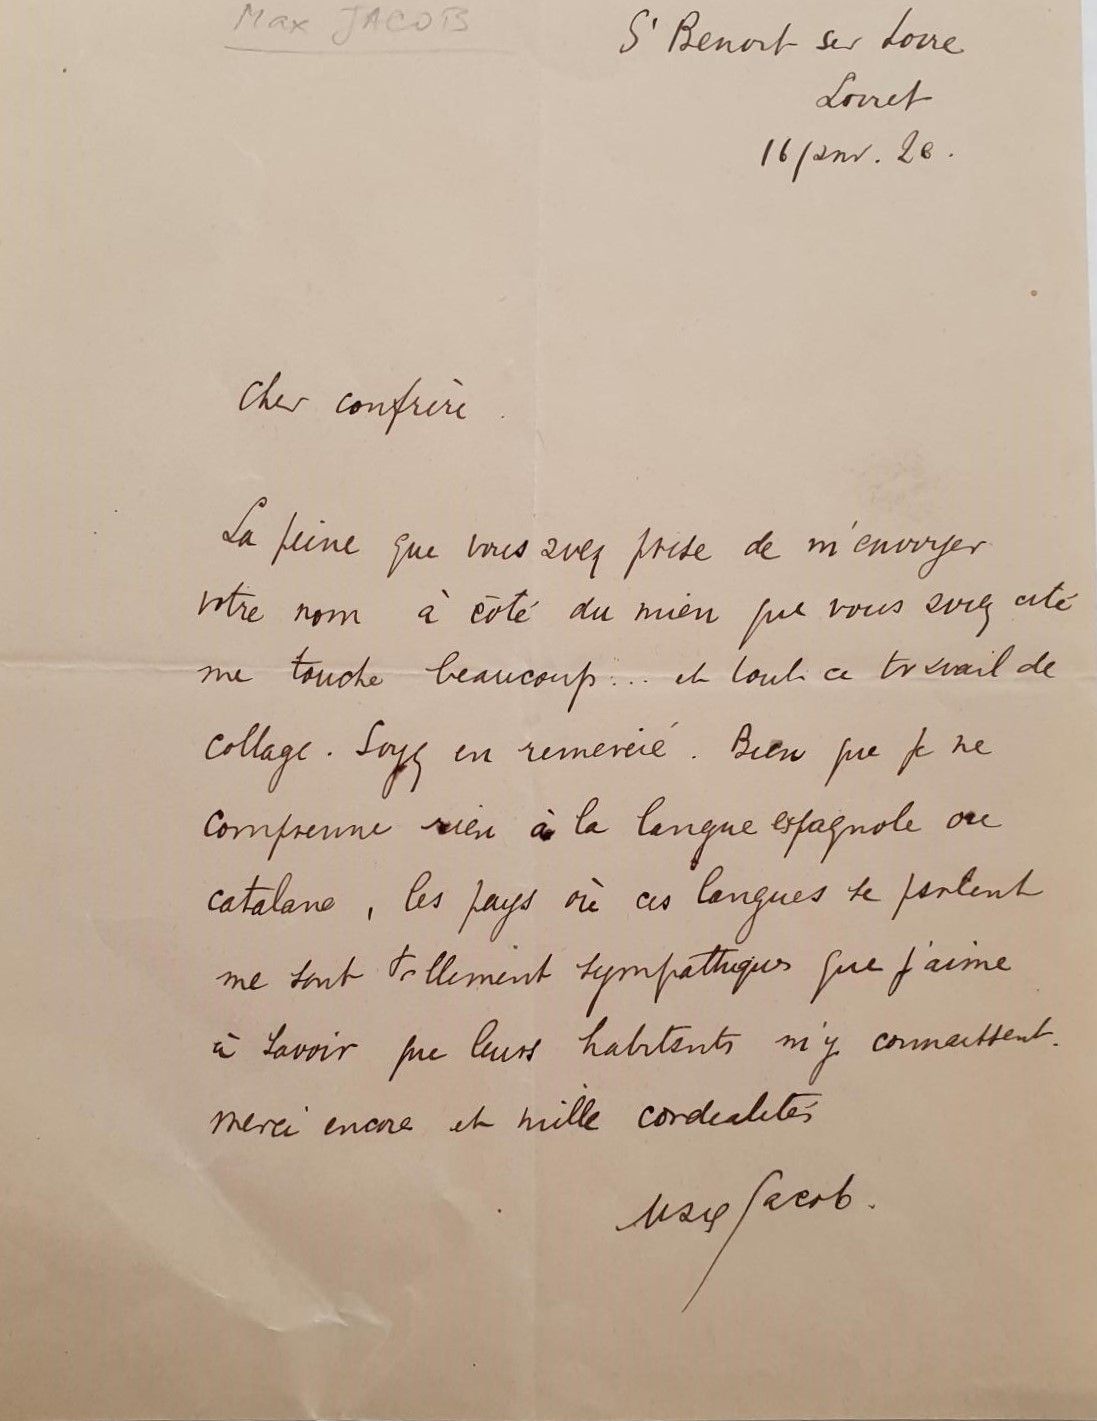 Max JACOB
St Benoit sur Loire
Loiret
16 janv. 26.
Cher confrère.
La peine que vous avez prise de m'envoyer
votre nom à côté du mien que vous avez cité
me touche beaucoup... et tout ce travail de
collage. Soyez en remercié. Bien que je ne
comprenne rien à la langue espagnole ou
catalane, les pays où ces langues se parlent
me sont tellement sympathiques que j'aime
à savoir que leurs habitants m'y connaissent.
Merci encore et mille cordialités
Max Jacob.